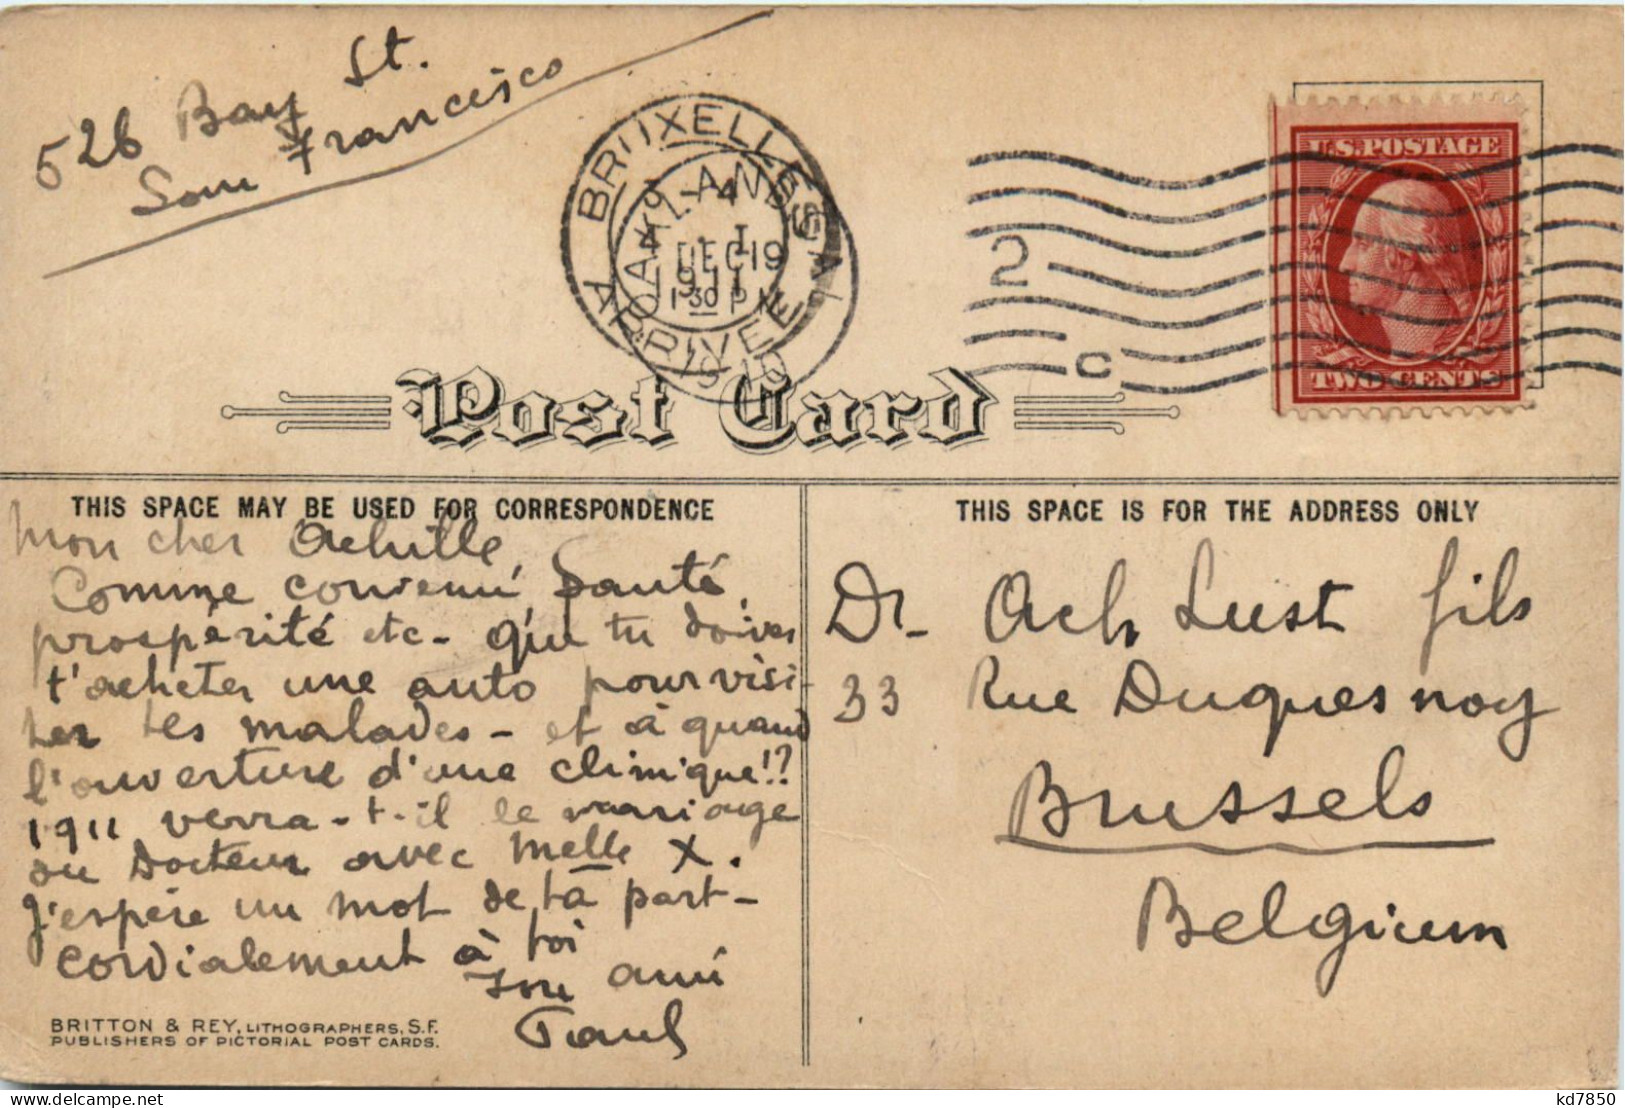 526 Bay St.
San Francisco
BRUXELLES
ARRIVEE
OAKLAND
CAL
DEC 19
1 30 P M
1910
1911
2 C
U.S. POSTAGE
TWO CENTS
Post Card
THIS SPACE MAY BE USED FOR CORRESPONDENCE
Mon cher Achille
Comme convenu, Santé,
prospérité etc - que tu doives
t'acheter une auto pour visi-
ter tes malades - et à quand
l'ouverture d'une clinique!?
1911 verra-t-il le mariage
du Docteur avec Melle X.
J'espère un mot de ta part -
cordialement à toi
Ton ami
Paul
BRITTON & REY, LITHOGRAPHERS, S.F.
PUBLISHERS OF PICTORIAL POST CARDS.
THIS SPACE IS FOR THE ADDRESS ONLY
Dr - Ach Lust fils
33 Rue Duquesnoy
Brussels
Belgium
kd7850